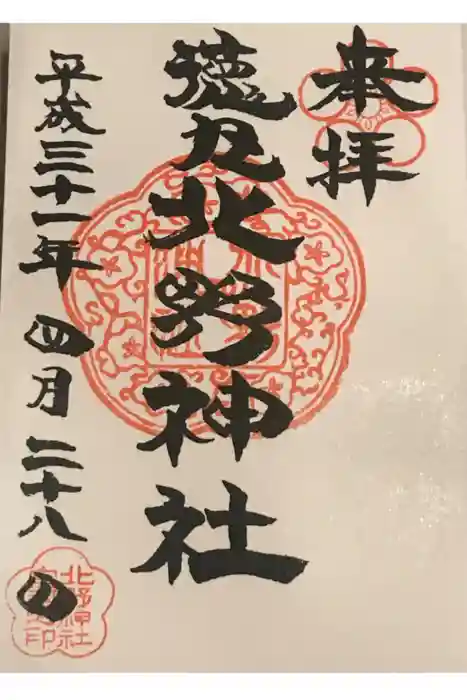 奉拝
徳丸北野神社
平成三十一年四月二十八日
北野神社